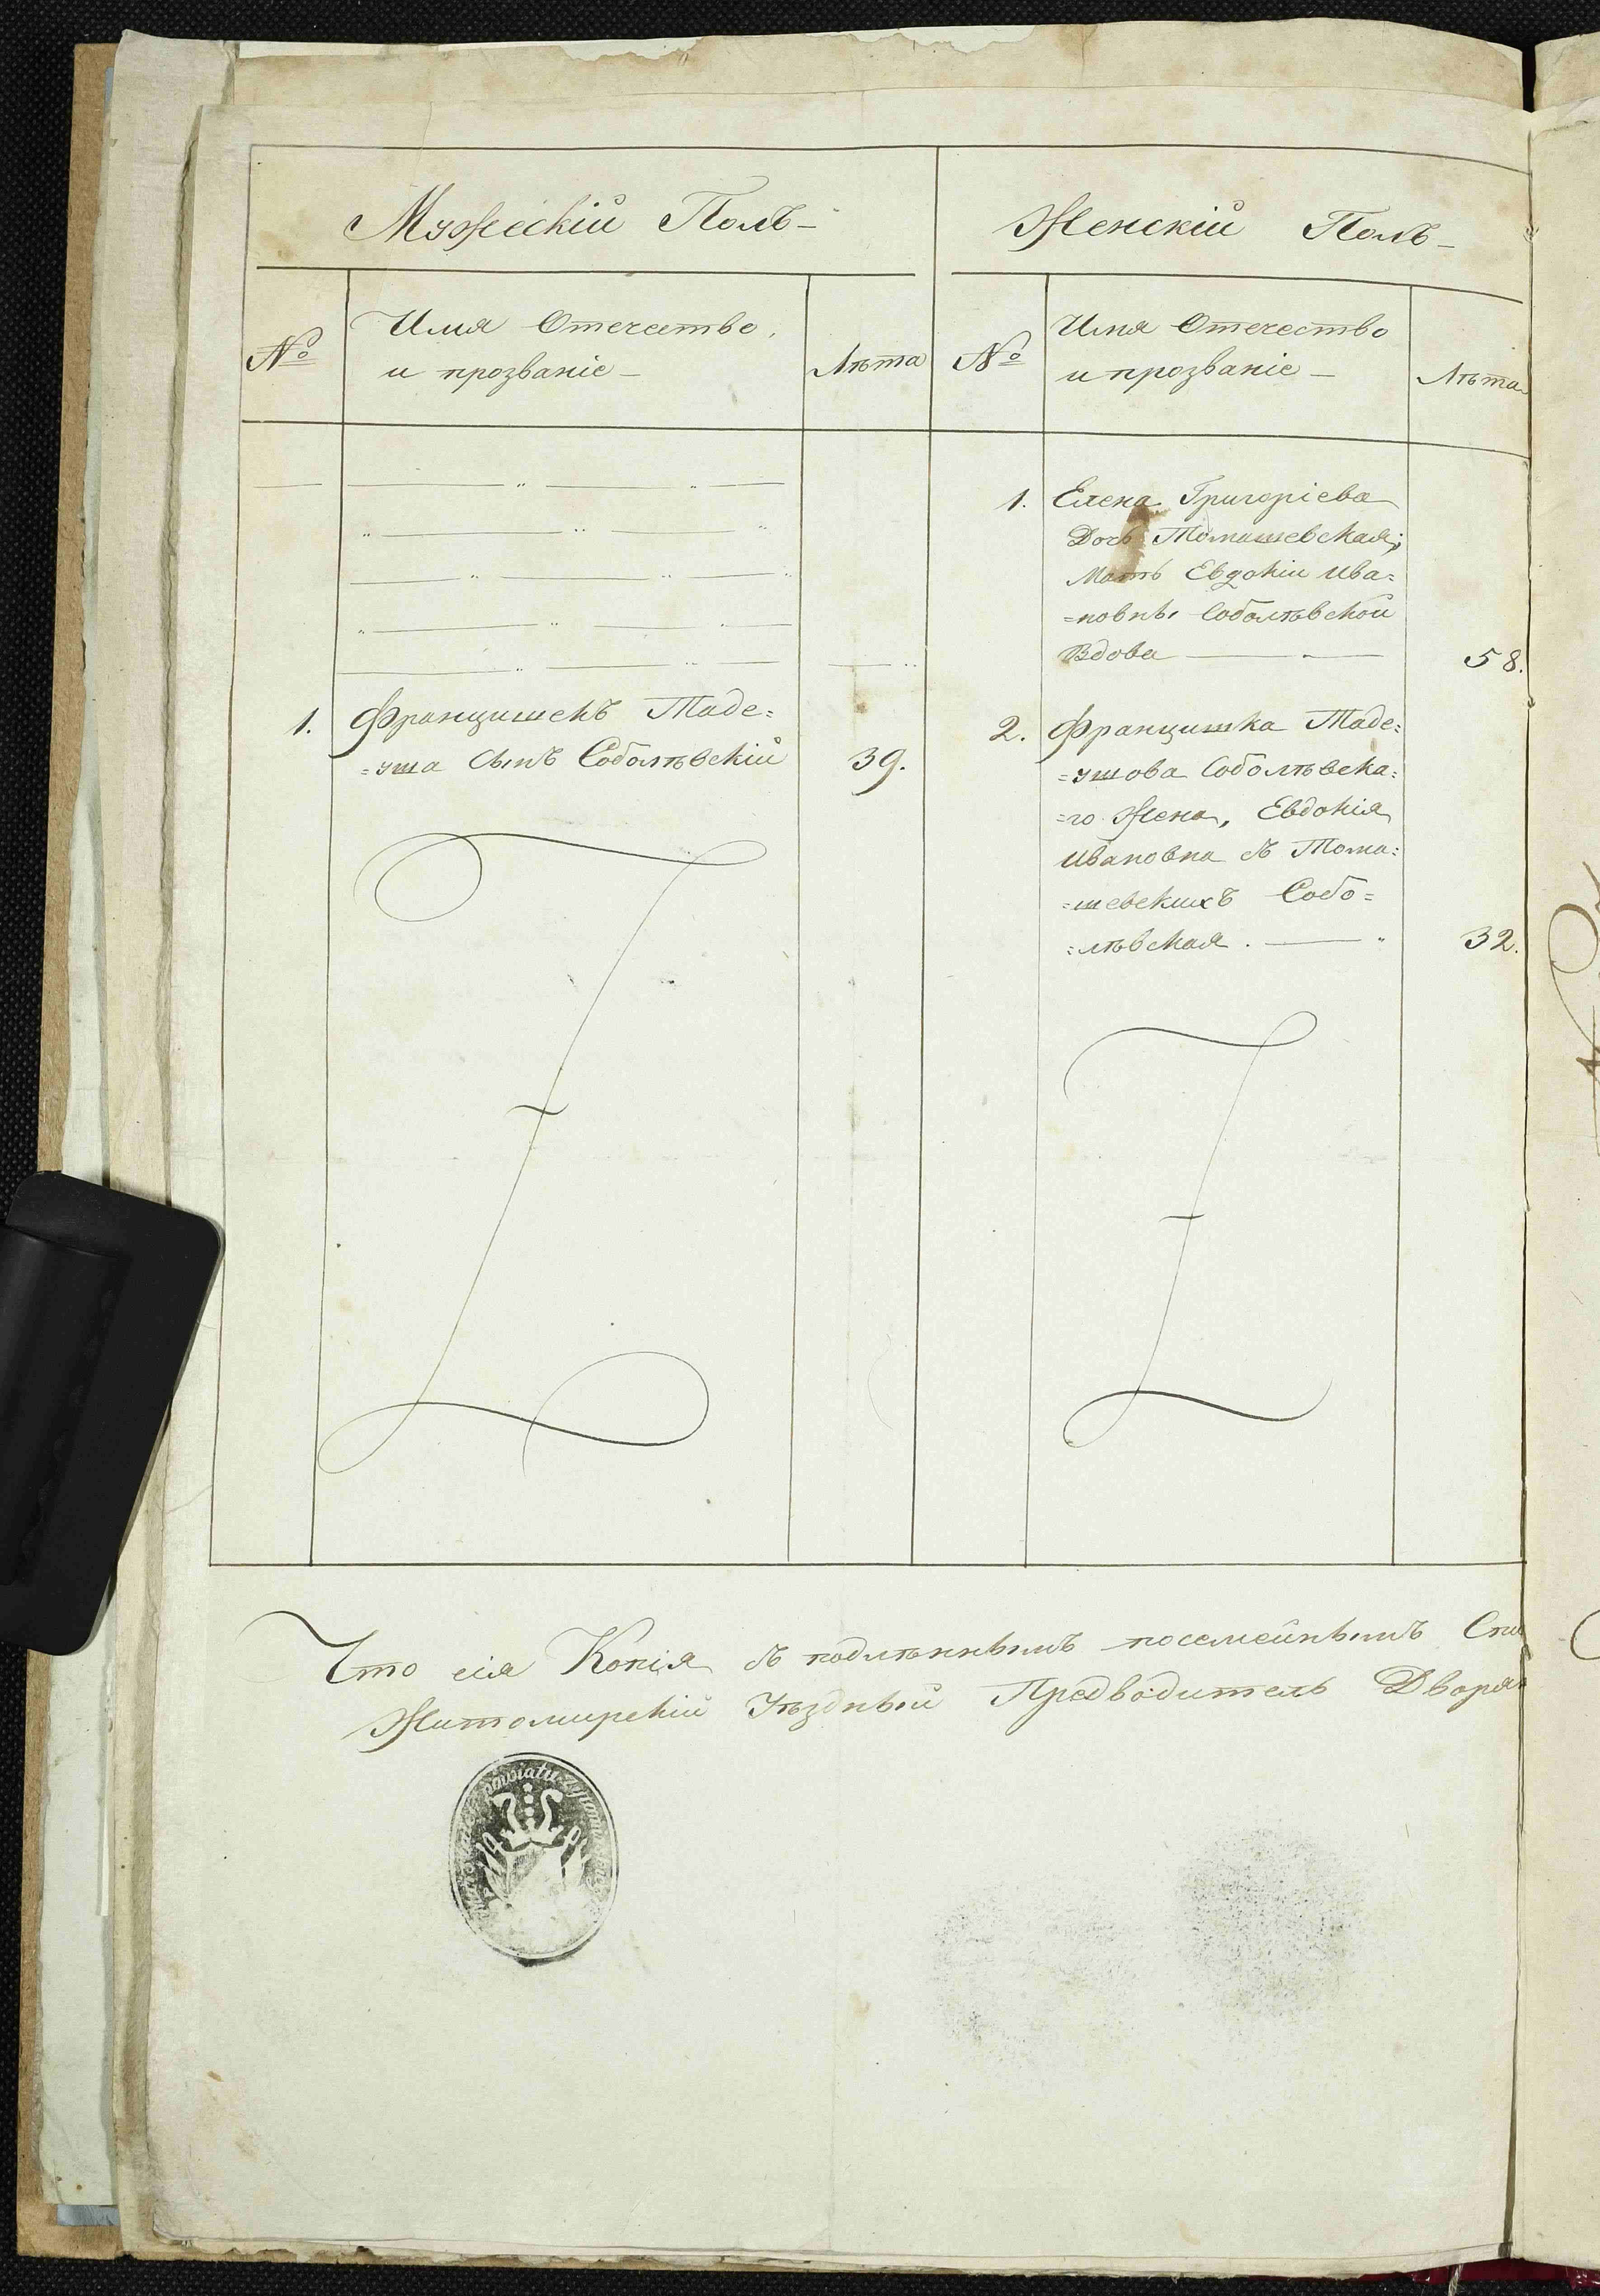 Мужескій Полъ
Женскій Полъ
№
Имя Отечество
и прозваніе
Лѣта
№
Имя Отечество
и прозваніе
Лѣта
1. Елена Григоріева
Дочь Томашевская;
Мать Евдокіи Ива=
=новны Соболѣвской
Вдова 58.
1. Францишекъ Таде=
=уша Сынъ Соболѣвскій 39.
2. Францишка Таде=
=ушова Соболѣвска=
=го Жена, Евдокія
Ивановна съ Тома=
=шевскихъ Собо=
=лѣвская. 32.
Что сія Копія съ подлѣннымъ посемейнымъ Спи
Житомирскій Уѣздный Предводитель Дворя
powiatu